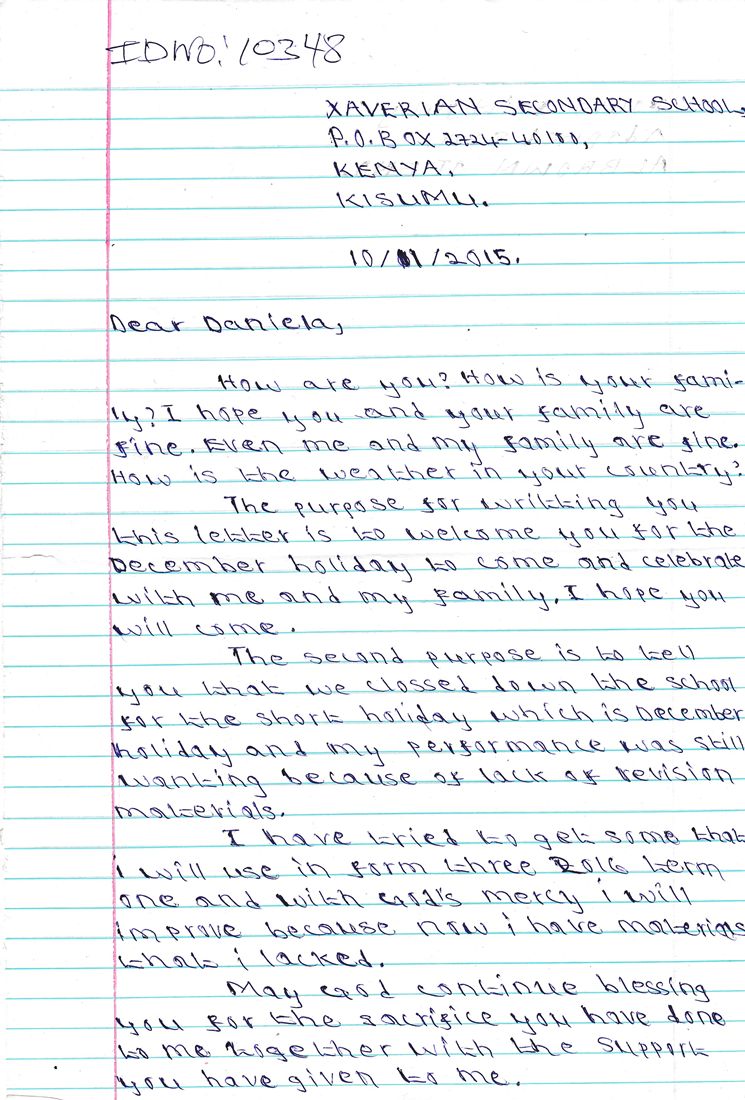 IDNO: 10348
XAVERIAN SECONDARY SCHOOL,
P.O.BOX 2724-40100,
KENYA,
KISUMU.
10/11/2015.
Dear Daniela,
How are you? How is your fami-
ly? I hope you and your family are
fine. Even me and my family are fine.
How is the weather in your country?
The purpose for writting you
this letter is to welcome you for the
December holiday to come and celebrate
with me and my family. I hope you
will come.
The second purpose is to tell
you that we clossed down the school
for the short holiday which is December
holiday and my performance was still
wanting because of lack of revision
materials.
I have tried to get some that
i will use in form three 2016 term
one and with God's mercy i will
improve because now i have materials
that i lacked.
May God continue blessing
you for the sacrifice you have done
to me together with the support
you have given to me.